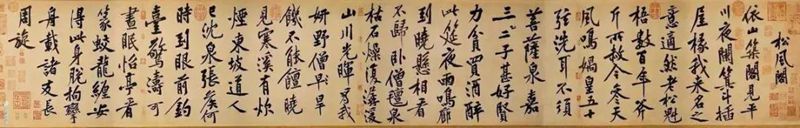 松風閣
依山築閣見平
川夜闌箕斗插
屋椽我來名之
意適然老松魁
梧數百年斧
斤所赦今參天
風鳴媧皇五十
弦洗耳不須
菩薩泉嘉
二三子甚好賢
力貧買酒醉
此筵夜雨鳴廊
到曉懸相看
不歸臥僧氈泉
枯石燥復潺湲
山川光暉為我
妍野僧早旱
飢不能饘曉
見寒溪有炊
煙東坡道人
已沈泉張侯何
時到眼前釣
臺驚濤可
晝眠怡亭看
篆蛟龍纏安
得此身脫拘攣
舟載諸友長
周旋